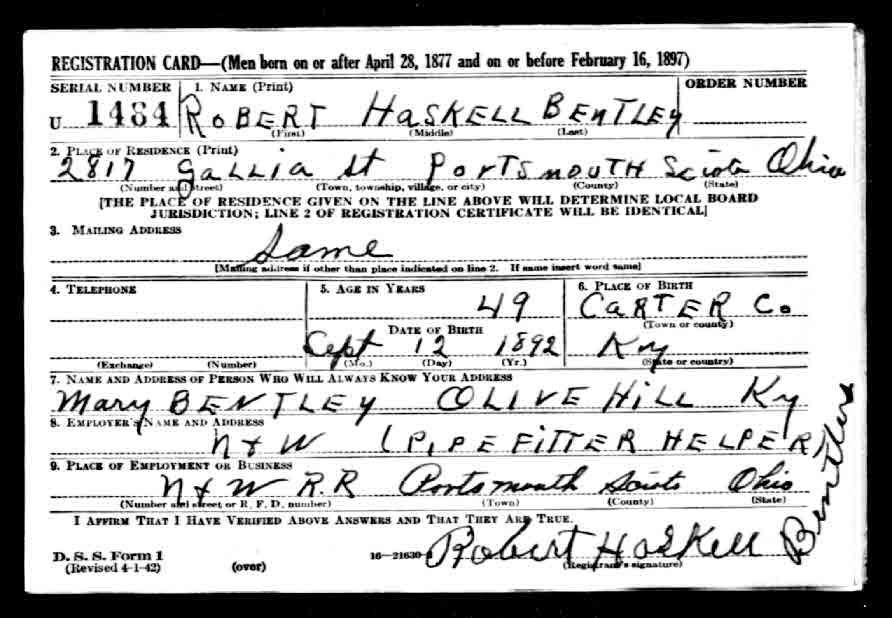 REGISTRATION CARD—(Men born on or after April 28, 1877 and on or before February 16, 1897)
SERIAL NUMBER 1. NAME (Print) ORDER NUMBER
U 1484 ROBERT HASKELL BENTLEY
(First) (Middle) (Last)
2. PLACE OF RESIDENCE (Print)
2817 Gallia St PORTSMOUTH Scioto Ohio
(Number and street) (Town, township, village, or city) (County) (State)
[THE PLACE OF RESIDENCE GIVEN ON THE LINE ABOVE WILL DETERMINE LOCAL BOARD
JURISDICTION; LINE 2 OF REGISTRATION CERTIFICATE WILL BE IDENTICAL]
3. MAILING ADDRESS
Same
[Mailing address if other than place indicated on line 2. If same insert word same]
4. TELEPHONE 5. AGE IN YEARS 6. PLACE OF BIRTH
49 CARTER Co
(Town or county)
DATE OF BIRTH
Sept 12 1892 Ky
(Exchange) (Number) (Mo.) (Day) (Yr.) (State or country)
7. NAME AND ADDRESS OF PERSON WHO WILL ALWAYS KNOW YOUR ADDRESS
Mary BENTLEY OLIVE HILL Ky
8. EMPLOYER'S NAME AND ADDRESS
N + W (PIPE FITTER HELPER)
9. PLACE OF EMPLOYMENT OR BUSINESS
N + W R.R Portsmouth Scioto Ohio
(Number and street or R. F. D. number) (Town) (County) (State)
I AFFIRM THAT I HAVE VERIFIED ABOVE ANSWERS AND THAT THEY ARE TRUE.
Robert Haskell Bentley
D. S. S. Form 1
(Revised 4-1-42) (over) 16—21630 (Registrant's signature)